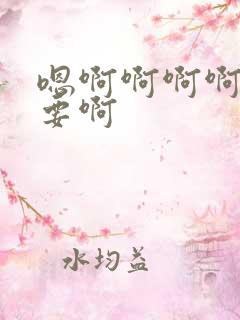 嗯啊啊啊啊
要啊
水均益